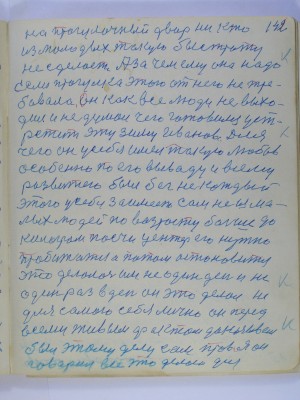 на прогулочный двор ни кто 142
из молодых такую быстроту
не сделает. А зачем ему она надо
сама прогулка этого от него не тре-
бовала, он как все люди не выхо-
дил и не думал чего готовили уст-
ретить эту зиму Иванов. Для
чего он у себя имел такую любовь
особенно по его выводу и всему
развитию был бег не каждый
этого у себя займеет сам не има-
лых людей по возрасту больше до
километра почти центр его нужно
пробежать а потом остановится
это делалося им не один ден и не
один раз в ден он это делал не
для самого себя лично он перед
всеми живым фактом доказывал
был этому делу сам прав я он
говорил все это делаю для